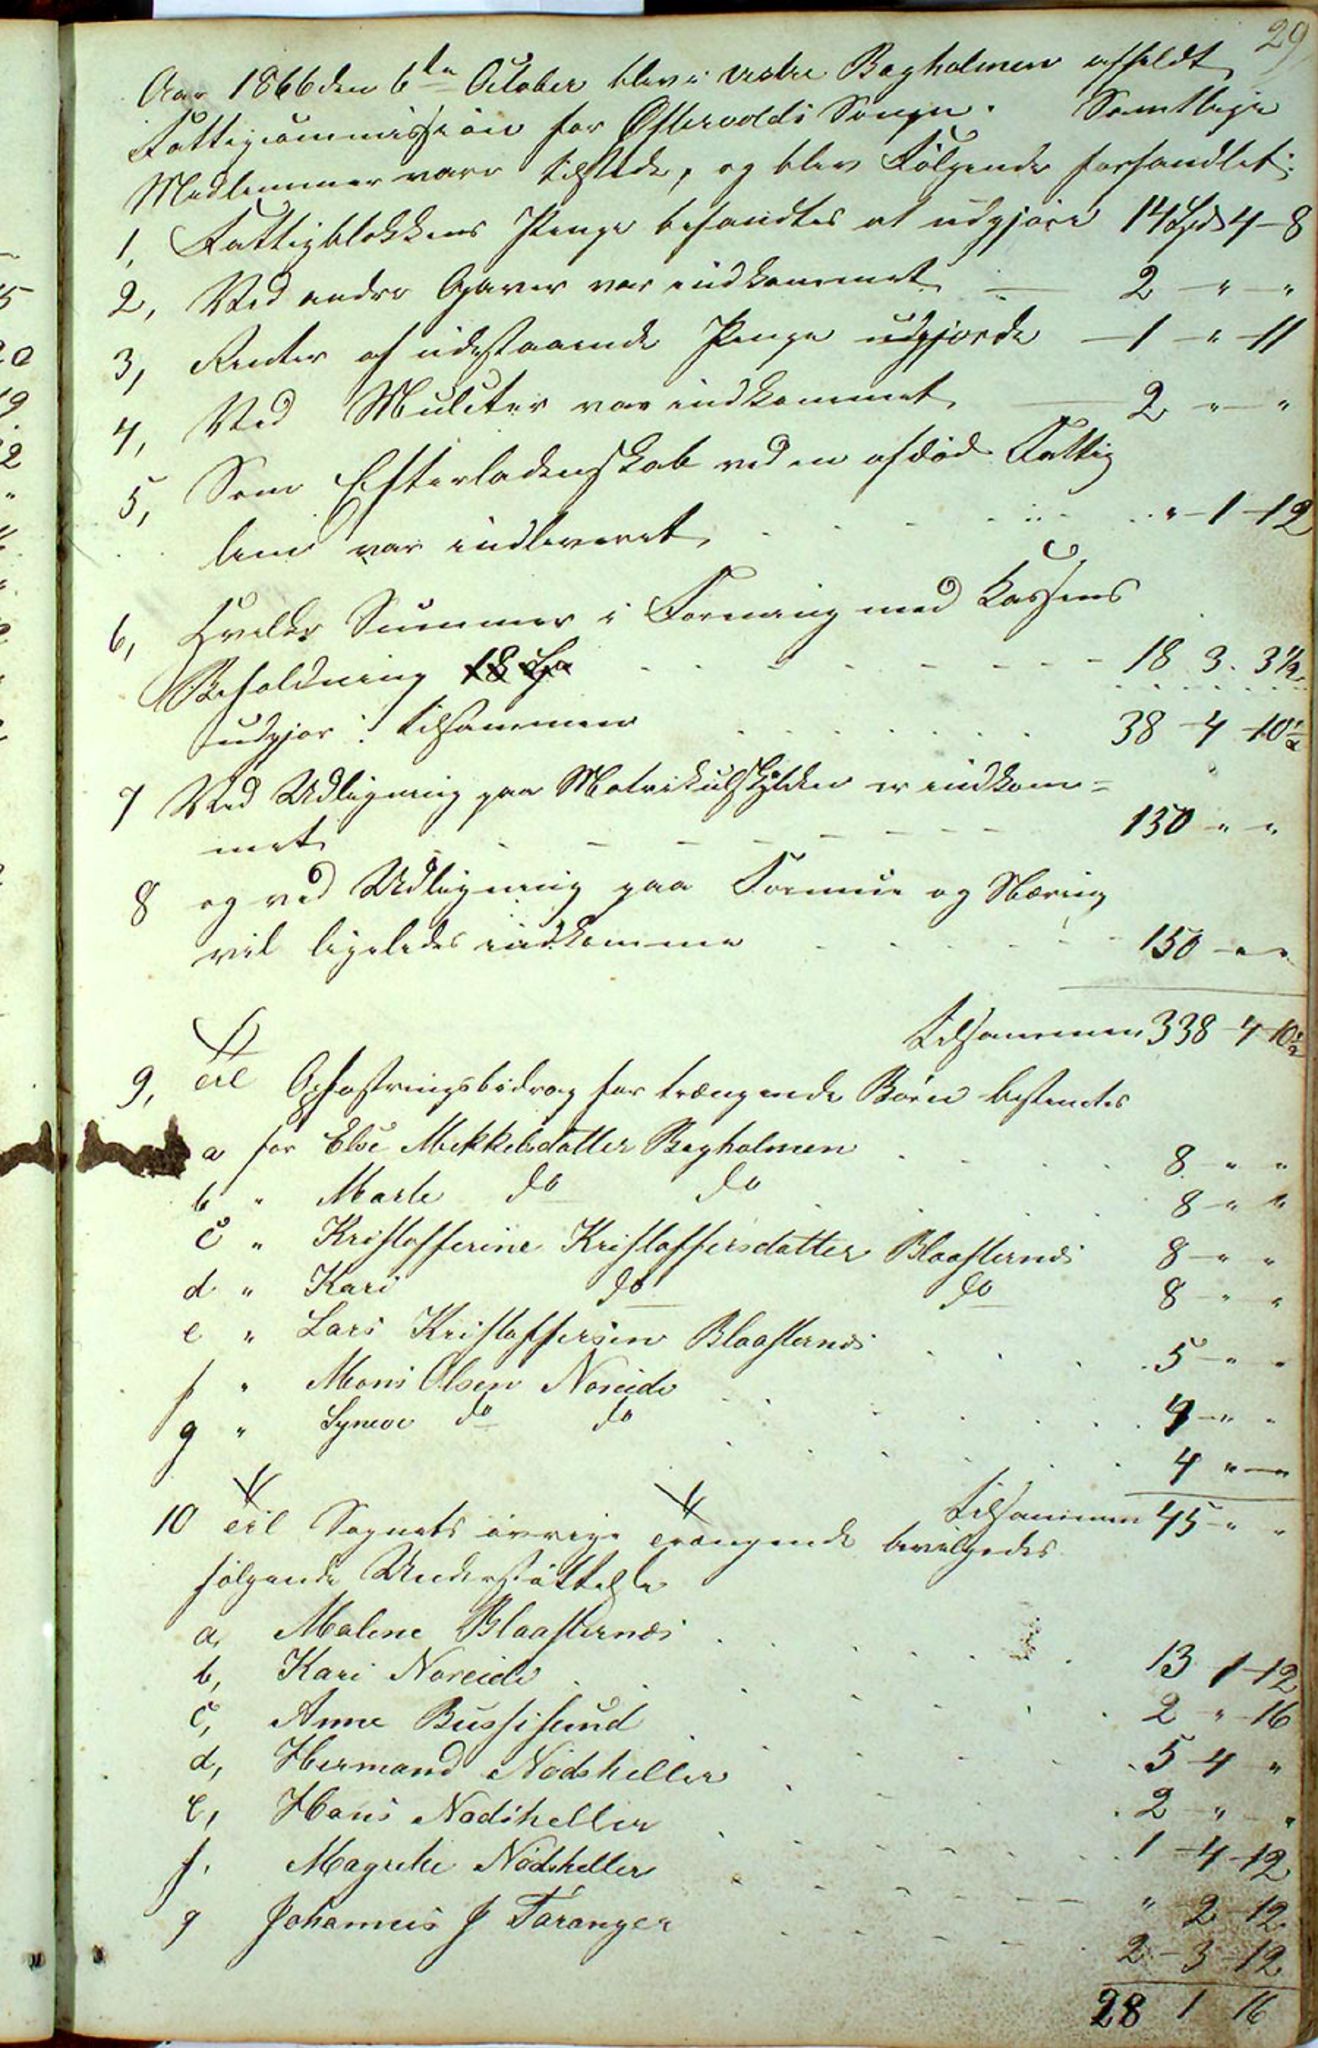 29
Aar 1866 den 6te October blev i vestre Bogholmen afholdt
Fattigcommission for Østervolds Songn. Samtlige
Medlemmer vare tilstede, og blev Følgende forhandlet:
1, Fattigblokkens Penge befandtes at udgjøre 14 Spd 4 - 8
2, Ved andre Gaver var indkommet 2 - " - "
3, Renter af udestaaende Penge udgjorde - 1 - " - 11
4, Ved Mulcter var indkommet 2 " - "
5, Som Efterladenskab ved en afdød Fattig
lem var indleveret " - 1 - 12
6, Hvilke Summer i Forening med Kassens
Beholdning 18 Sp 18 3. 3 1/2
udgjør: tilsammen 38 - 4 - 10 1/2
7 Ved Udligning paa Matrikulskylden er indkom=
met 150 - " "
8 og ved Udligning paa Formue og Næring
vil ligeledes indkomme 150 - " - "
tilsammen 338 - 4 - 10 1/2
9, til Opfostringsbidrag for trængende Børn bestemtes
a for Else Mikkelsdatter Bogholmen 8 - " "
b " Marte do do 8 - " "
c " Kristofferine Kristoffersdatter Blaasternæs 8 - " "
d " Kari do do 8 - " "
e " Lars Kristoffersen Blaasternæs 5 - " "
f " Mons Olsen Noreide 4 - " "
g " Syneve do do 4 " - "
tilsammen 45 - " "
10 til Sognets øvrige trængende bevilgedes
følgende Understøttelse
a, Malene Blaasternæs 13 1 - 12
b, Kari Noreide 2 - " - 16
c, Anne Bussesund 5 - 4 - "
d, Hermand Nødsheller 2 - " - "
e, Hans Nødsheller 1 - 4 - 12
f. Magrete Nødsheller " 2 - 12
g Johannes J Taranger 2 - 3 - 12
28 1 16